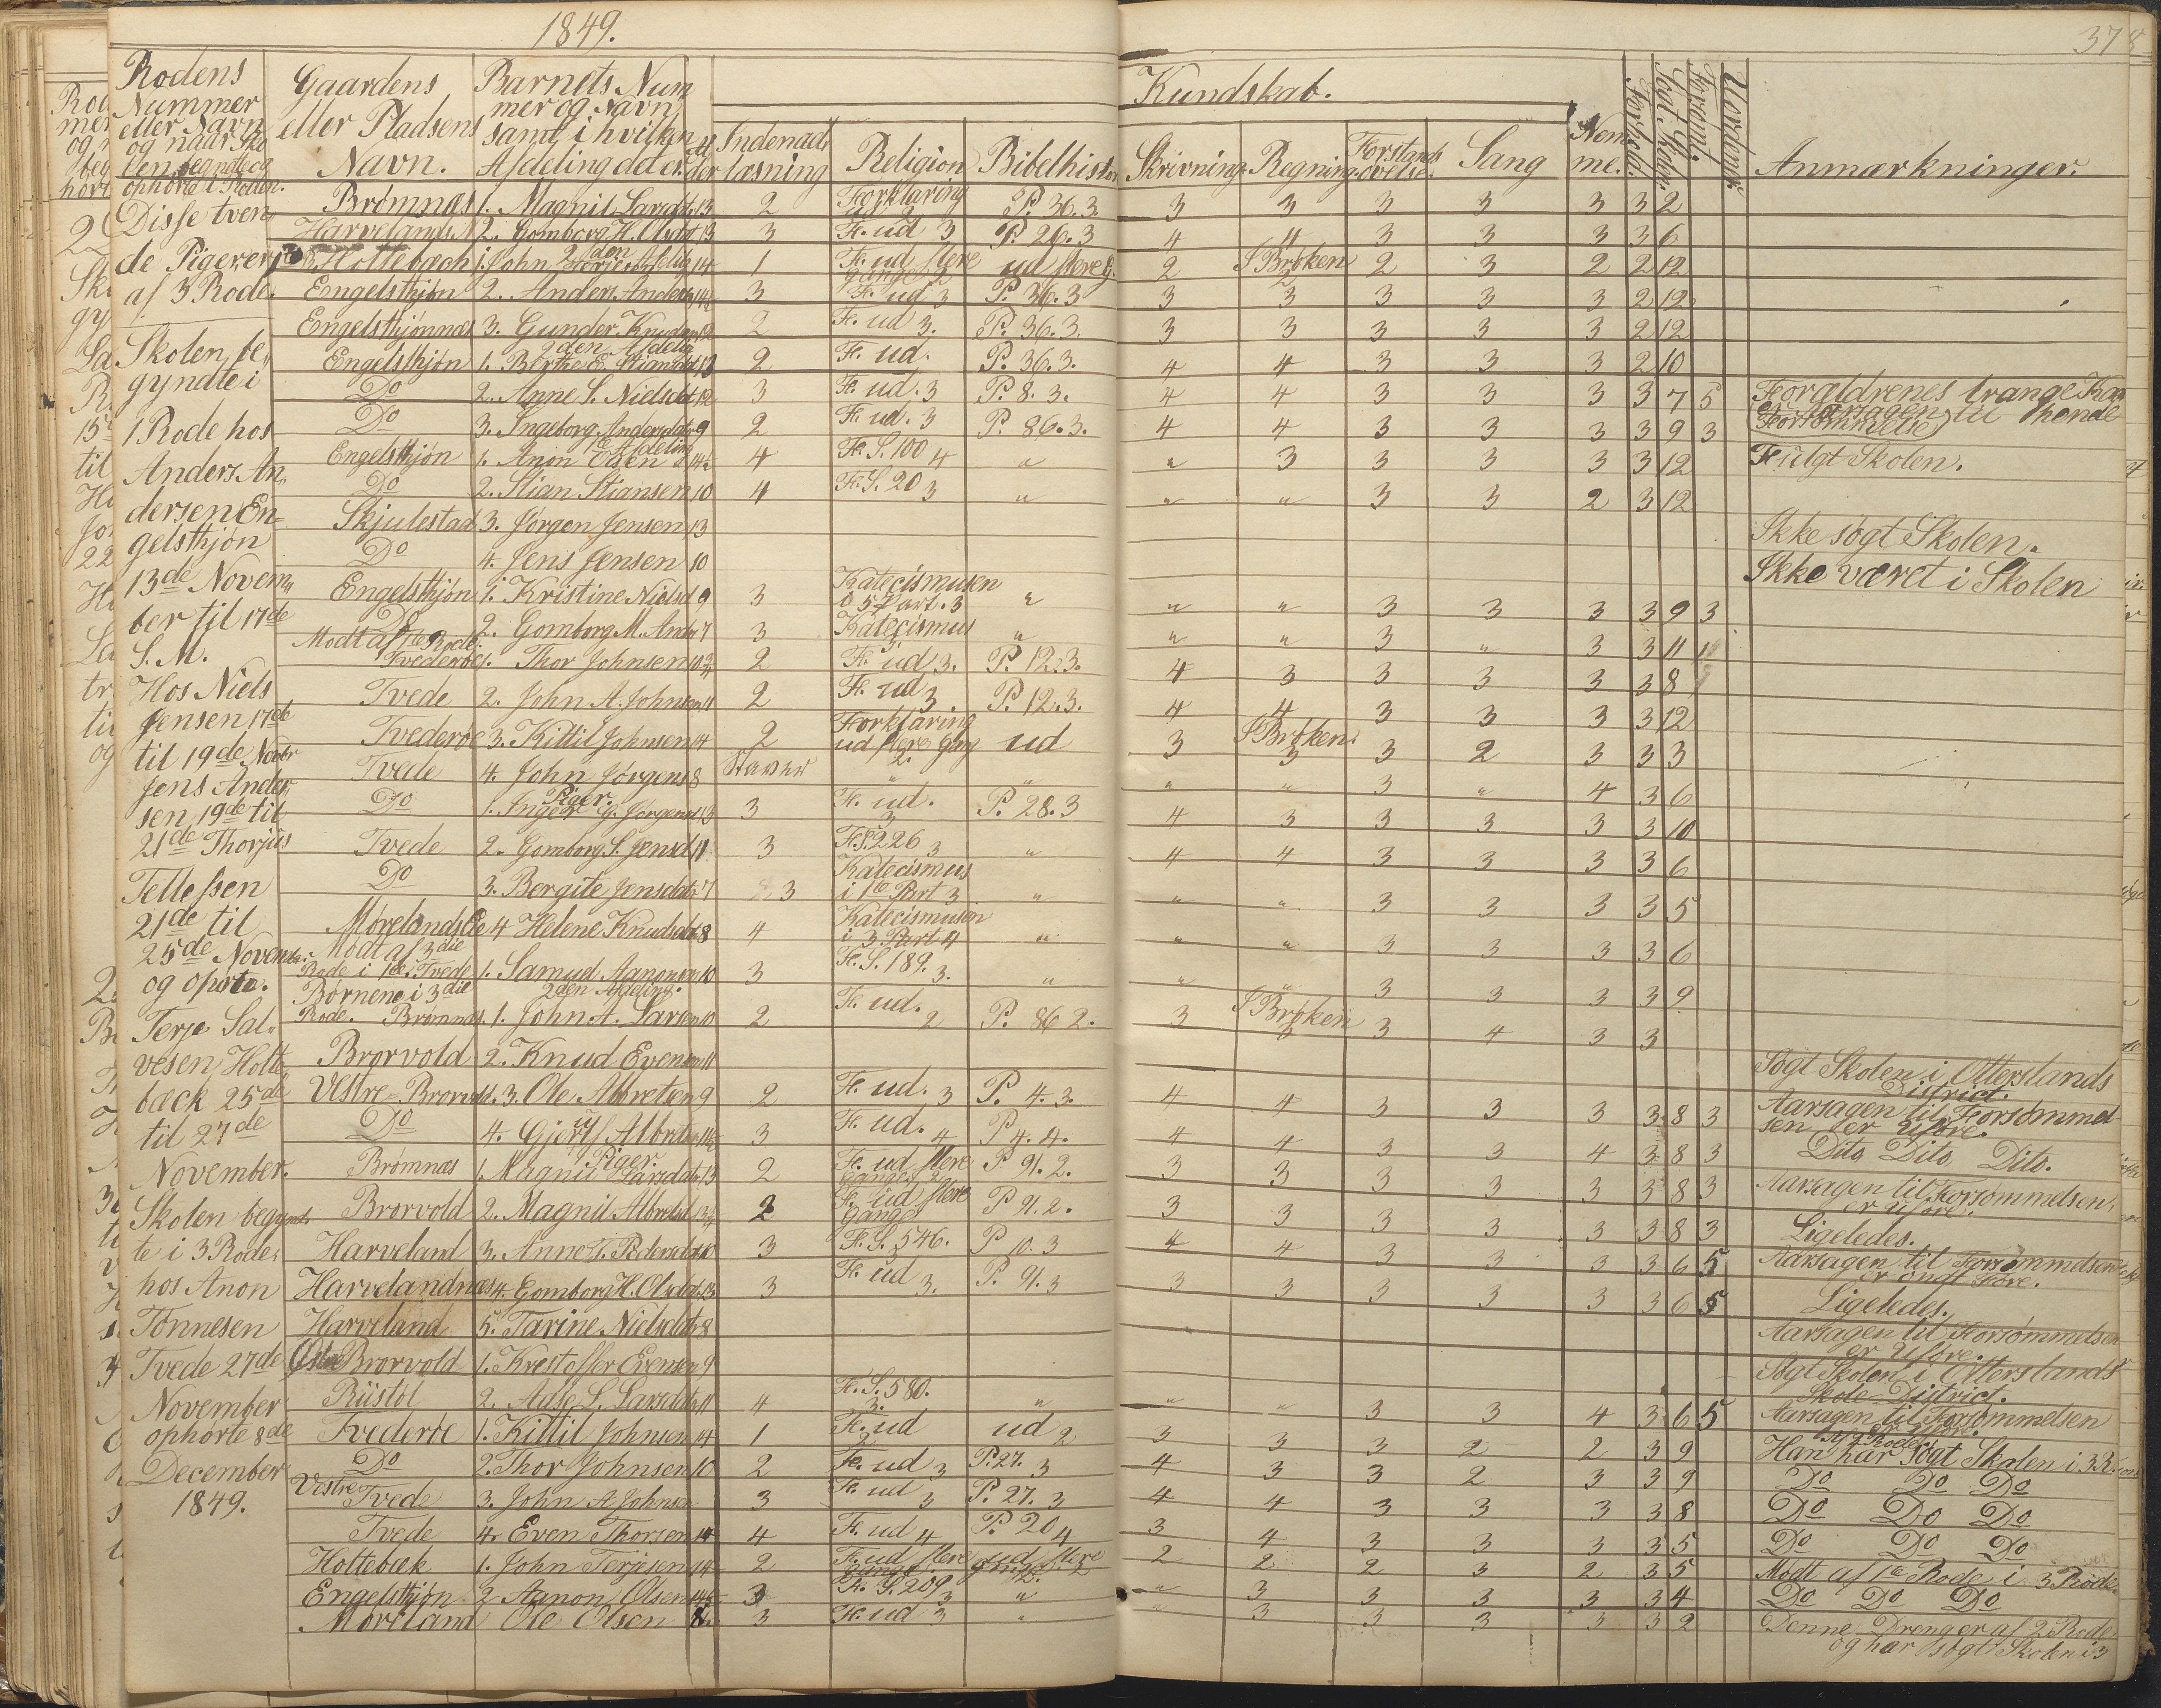 1849.
378
Rodens
Nummer
eller Navn
og naar Sko
len begyndte og
ophørte i Roden.
Gaardens
eller Pladsens
Navn.
Barnets Num
mer og Navn
samt i hvilken
Afdeling dd er.
Al
der
Kundskab.
Indenad
læsning
Religion
Bibelhistor
Skrivning
Regning
Forstands
øvelse
Sang
Nem
me.
Forhold.
Sögt. Skolen
Forsömt.
Uordentl.
Anmærkninger.
Disse tven
de Piger er
af 3 Rode.
Skolen be
gyndte i
1 Rode hos
Anders An
dersen En
gelsthjøn
13de Novem
ber til 17de
S. M.
Hos Niels
Jensen 17de
til 19de Novbr
Jens Ander
sen 19de til
21de Thorjus
Tellefsen
21de til
25de Novembr.
og opsto.
Terje Sal
vesen Holte
bæck 25de
til 27de
November.
Skolen begynd
te i 3 Rode
hos Anon
Tönnesen
Tvede 27de
November
ophørte 8de
December
1849.
Brømnæs 1. Magnil Larsdt. 13 2 Forklaring ud 2 P. 36.3. 3 3 3 3 3 3 2
Harvelands N 2. Gomborg H. Olsdt 13 3 F. ud 3 P. 26.3 4 4 3 3 3 3 6
Holtebæch 1. John Terjesen 2den Afdeling 14 1 F. ud flere gange 2 ud flere g. 2 I Brøken 2 2 3 2 2 12
Engelsthjøn 2. Anders Anders 14 3 F. ud 3 P. 36.3 3 3 3 3 3 2 12
Engelsthjønnæs 3. Gunder Knudsen 12 2 F. ud 3. P. 36.3. 3 3 3 3 3 2 12
2den Afdeling
Engelsthjøn 1. Berthe E. Stiansdt 13 2 F. ud. P. 36.3. 4 4 3 3 3 2 10
Do 2. Anne S. Nielsdt 12 3 F. ud. 3 P. 8.3. 4 4 3 3 3 3 7 5 Forældrenes trange Kaar
Do 3. Ingeborg Andersdtr 9 2 F. ud. 3 P. 86.3. 4 4 3 3 3 3 9 3 er Aarsagen til denne Forsømmelse
1te Afdeling
Engelsthjøn 1. Anon Olsen 14½ 4 F. S. 100 4 " " 3 3 3 3 3 12 Fulgt Skolen.
Do 2. Stian Stiansen 10 4 F. S. 20 3 " " " 3 3 2 3 12
Skjulestad 3. Jørgen Jensen 13 Ikke søgt Skolen.
Do 4. Jens Jensen 10 Ikke været i Skolen
Engelsthjøn 1. Kristine Nielsd 9 3 Katecismusen i 5 Part. 3 " " " 3 3 3 3 9 3
Do 2. Gomborg M. Ander 7 3 Katecismus " " " 3 " 3 3 11 1
Modt af 1te Rode.
Tvederøe 1. Thor Johnsen 10½ 2 F. ud 3. P. 12.3. 4 3 3 3 3 3 8
Tvede 2. John A. Johnsen 11 2 F. ud 3. P. 12.3. 4 4 3 3 3 3 12
Tvederøe 3. Kittil Johnsen 14 2 Forklaring ud flere gang 2. ud 3 I Brøken 3 3 2 3 3 3
Tvede 4. John Jørgens 8 Staver " " " " 3 " 4 3 6
Piger.
Do 1. Inger G. Jørgensd 13 3 F. ud. 3 P. 28.3 4 3 3 3 3 3 10
Tvede 2. Gomborg S. Jensd 11 3 F. S. 226 3 " 4 4 3 3 3 3 6
Do 3. Bergite Jensdatr 7 3 Katecismus i 1te Part 3 " " " 3 3 3 3 5
Mørelands Eie 4 Helene Knudsdatr 8 4 Katecismusen i 3 Part 4 " " " 3 3 3 3 6
Modt af 3die
Rode i 1te. Tvede 1. Samuel Aanonsen 10 3 F. S. 189. 3. " " " 3 3 3 3 9
Børnene i 3die 2den Afdeling.
Rode. Brømnæs. 1. John A. Larsen 10 2 F. ud. 2 P. 86 2. 3 I Brøken 3 3 4 3 3
Brorvold 2. Knud Evensen 11 Søgt Skolen i Otterslands District.
Vestre-Brorvold. 3. Ole Albretsen 9 2 F. ud. 3 P. 4.3. 4 4 3 3 3 3 8 3 Aarsagen til Forsømmel sen er Uføre.
Do 4. Gjerulf Albrtsen 11½ 3 F. ud. 4 P 4.4. 4 4 3 3 4 3 8 3 Dito Dito Dito.
Piger.
Brømnæs 1. Magnil Larsdatr 13 2 F. ud flere Ganger 2 P 91.2. 3 3 3 3 3 3 8 3 Aarsagen til Forsømmelsen er Uføre.
Brorvold 2. Magnil Albretsd 13½ 2 F. ud flere Ganger P 91.2. 3 3 3 3 3 3 8 3 Ligeledes.
Harveland 3. Anne T. Pedersdatr 10 3 F. S. 546. 3 P 10.3 4 4 3 3 3 3 6 5 Aarsagen til Forsømmelsen er ondt Føre.
Harvelandnæs 4. Gomborg H. Olsdt. 13 3 F. ud 3. P. 91.3 3 3 3 3 3 3 6 5 Ligeledes.
Harveland 5. Tarine Nielsdatr 8 Aarsagen til Forsømmelsen er Uføre.
Østre Brorvold 1. Krestoffer Evensen 9 Søgt Skolen i Otterslands Skole-District.
Büstöl 2. Adse L. Larsdatr 11 4 F. S. 580. 3. " " " 3 3 4 3 6 5 Aarsagen til Forsømmelsen er Uføre.
Tvederøe 1. Kittil Johnsen 14 1 F. ud 2 ud 2 3 3 3 2 2 3 9 Han har søgt Skolen i 3 R.
Do 2. Thor Johnsen 10 2 F. ud 3 P. 27. 3 4 3 3 2 3 3 9 Do Do Do
Vestre Tvede 3. John A. Johnsen 3 F. ud 3 P. 27. 3 4 4 3 3 3 3 8 Do Do Do
Tvede 4. Even Thorsen 14 4 F. ud 4 P. 20 4 3 4 3 3 3 3 5 Do Do Do
Holtebæk 1. John Terjesen 14 2 F. ud flere gange. ud flere gange. 2 2 2 2 3 2 3 5 Modt af 1te Rode i 3 Rode
Engelsthjøn 2 Aanon Olsen 14½ 3 F. S. 209 3 " " 3 3 3 3 3 4 Do Do Do
Møreland Ole Olsen 8 3 F. ud 3 " " 3 3 3 3 3 2 Denne Dreng er af 2 Rode
og har søgt Skolen i 3